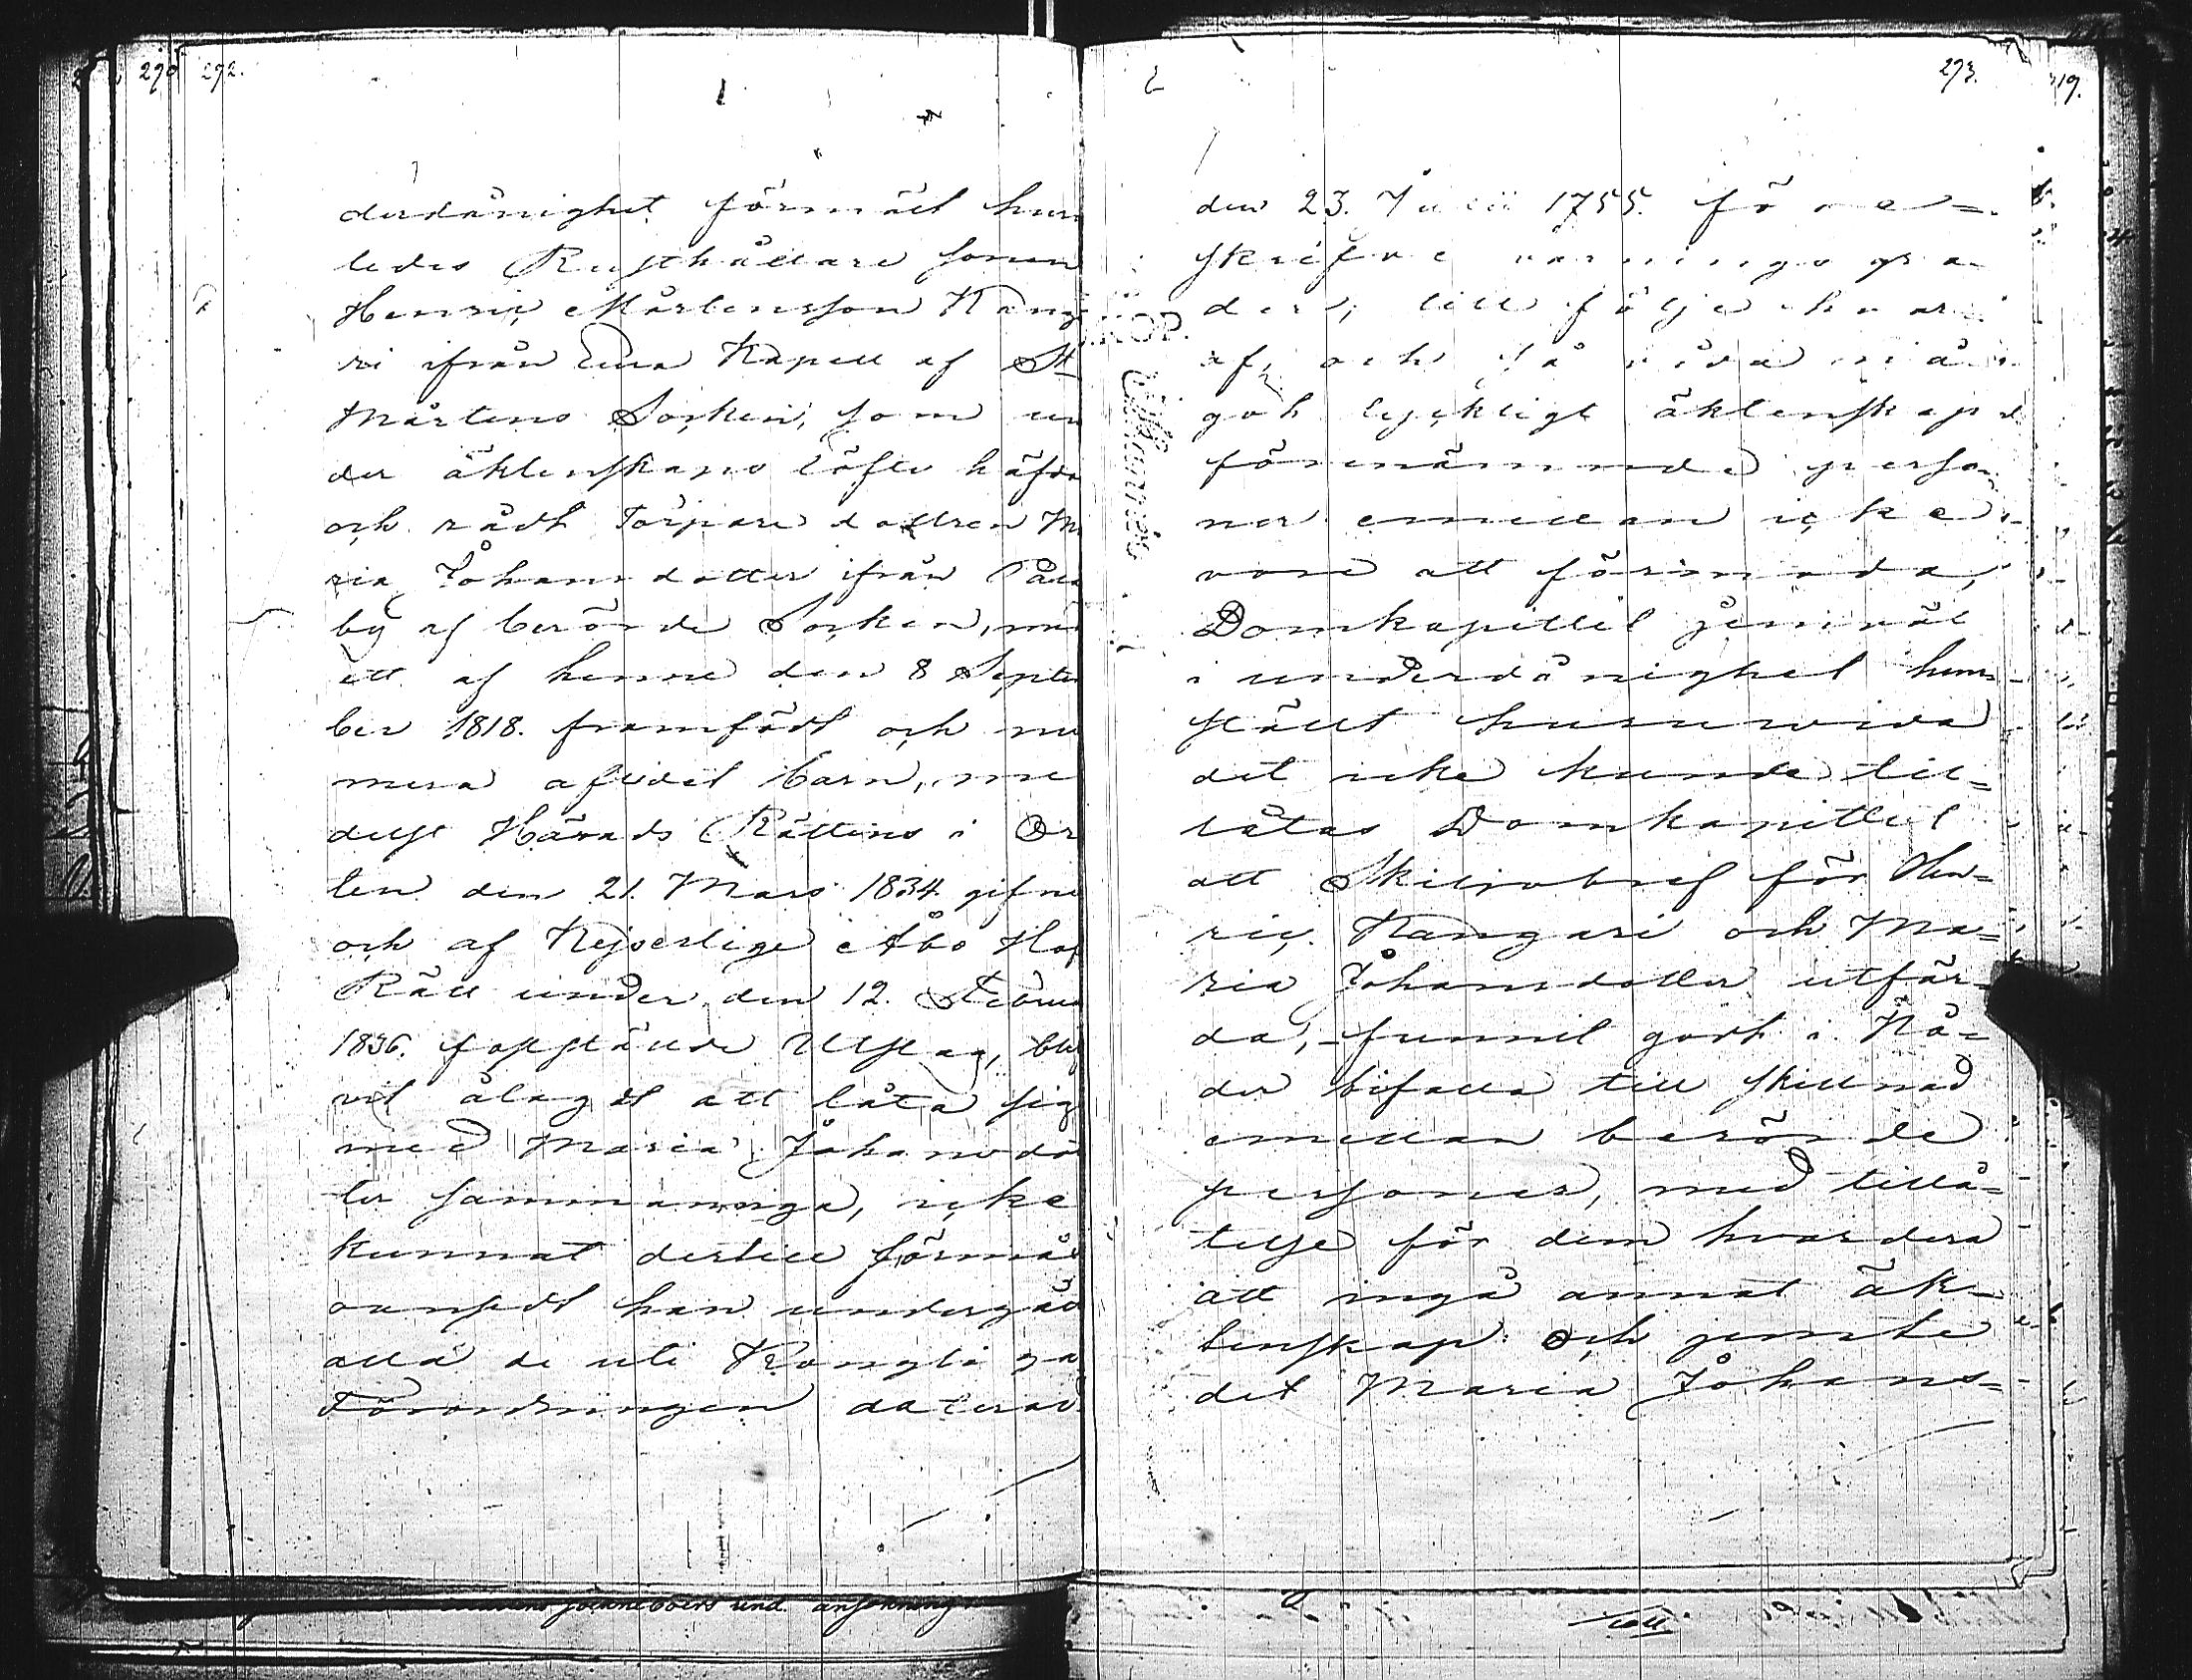 292.
derdånighet förmält huru
ledes Rusthållare sonen
Henric Mårtensson Kang
ri ifrån Lura Kapell af St
Mårtens Socken, som un
der äktenskaps löfte häfda
och rådt Torpare dottren Ma
ria Johansdotter ifrån
by af berörde Socken, me
ett af henne den 8 Septem
ber 1818. framfödt och nu
mera aflidet barn, me
delst Härads Rättens i Or
ten den 21. Mars 1834 gifne
och af Kejserlige Åbo Hof
Rätt under den 12.
1836. fastställde Utslag, blif
vit ålagdt att låta sig
med Maria Johansdot
ter sammanviga, icke
kunnat dertill förmås
oansedt han undergåt
alla de uti Kongliga
Förordningen daterad
273.
den 23. Julii 1755. före=
skrifne varningsgra
der, till följe hvar
af, och då
och lyckligt äktenskap
förenämnde perso
ner emellan icke
vore att förmoda,
Domkapitlet jemväl
i underdånighet hem
stält huruvida
det icke kunde til=
låtas Domkapitlet
att Skiljobref för Hen=
ric Kangari och Ma=
ria Johansdotter utfär
da, funnit godt i Nå=
der bifalla till skillnad
emellan berörde
personer, med tillå=
telse för dem hvardera
att ingå annat äk=
tenskap: och jemte
det Maria Johans=